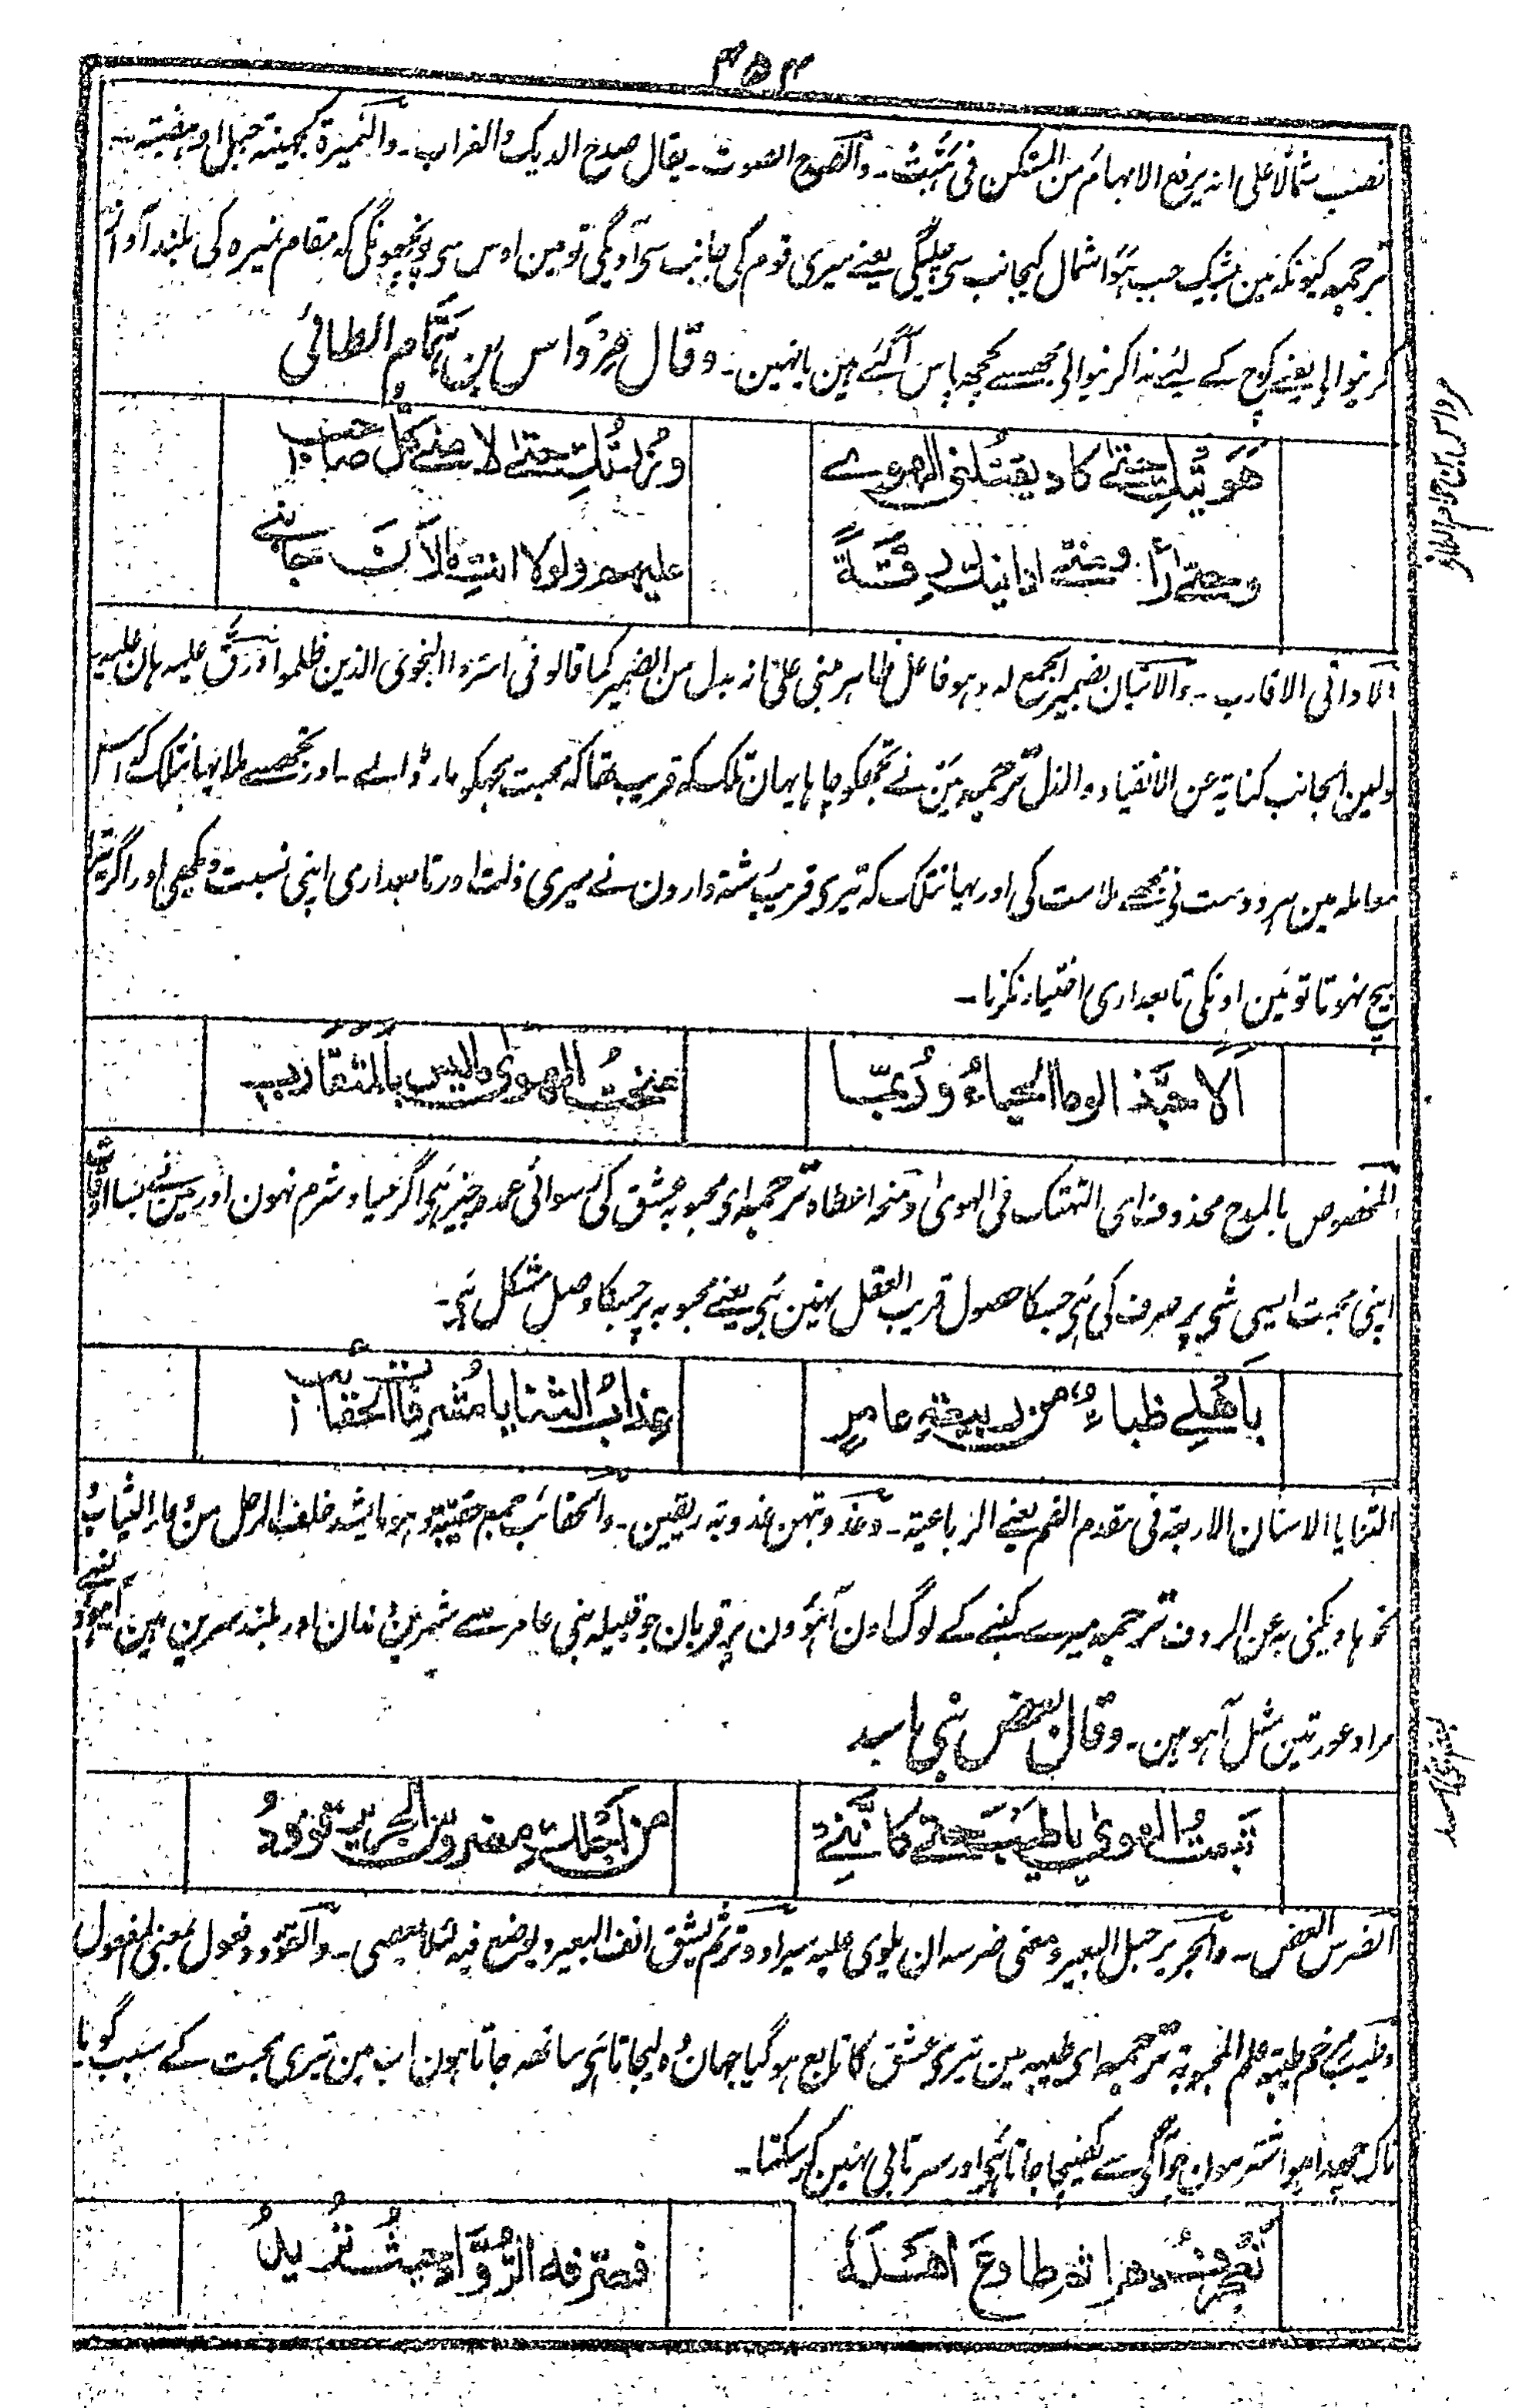 ۴۵۴
نصب شمالا علی انہ یرفع الابہام من المستکن فی ہبّت ۔ والصدح الصوت ۔ یقال صدح الدیک والغراب ۔ والنمیرة کجہینة جبل او ہضبتہ
ترجمہ کیونکہ مین بیشک جب ہوا شمال کیجانب سی چلیگی یعنے میری قوم کی جانب سی آویگی تو مین اوس سی پوچھونگی کہ مقام نمیرہ کی بلند آواز
کرنیوالی یعنے کوچ کے لیئے ندا کرنیوالی مجھسے کچھ پاس آگئے ہین یا نہین ۔ وقال مرداس بن ہمّام الطائی
هَوِیتُكِ حتّٰے كاد یقتلنی الهوے
وزُرتُكِ حتّٰے لامنے كلّ صاحب
وحتّٰے رأٰ منّے ادانیكِ رِقّةً
علیهم ولولا انتِ ما لأنَ جانبے
الادانی الاقارب ۔ والاتیان بضمیر الجمع لہ وہو فاعل ظاہر مبنی علی انہ بدل من الضمیر کما قالو فی اسرّوا النجوی الذین ظلموا ورقّ علیہ ہان علیہ
ولین الجانب کنایة عن الانقیاد والذل ترجمہ مین نے تجھکو چاہا یہان تلک کہ قریب تھا کہ محبت مجھکو مار ڈالے ۔ اور تجھسے ملا یہانتلک کہ اس
معاملہ مین ہر دوست نی مجھے ملامت کی اور یہانتلک کہ تیری قریب رشتہ دارون نے میری ذلت اور تابعداری اپنی نسبت دیکھی اور اگر تو
بیچ نہوتا تو مین اونکی تابعداری اختیار نکرتا ۔
الا حبّذا لوما الحیاءُ ورُبّما
منحتُ الهوٰی مالیس بالمتقارب
المخصوص بالمدح محذوف ای التہتک فی الہوی ومنحہ اعطاہ ترجمہ ای محبوبہ عشق کی رسوائی عمدہ چیز ہی اگر حیا وشرم نہون اور مین نے بسا اوقات
اپنی محبت ایسی شی پر صرف کی ہی جسکا حصول قریب العقل نہین ہی یعنے محبوبہ پر جسکا وصل مشکل ہی ۔
باَهلے ظباءٌ من ربیعةِ عامرٍ
عِذابُ الثنایا مُشرفات الحقائب
الثنایا الاسنان الاربعة فی مقدم الفم یعنے الرباعیة ۔ وعذوبتہن عذوبة ریقہن ۔ والحقائب جمع حقیبة وہو ما یشد خلف الرحل من الثیاب
نحوہا ویکنی بہ عن الردف ترجمہ میرے کنبے کے لوگ اون آہوون پر قربان جو قبیلہ بنی عامر سے شیرین دندان اور بلند سرین ہین
مراد عورتین مثل آہو ہین ۔ وقال بعض بنی اسد
تبعتُ الهوٰی یا طیبَ حتّے كاَنّنے
من اَجلكِ مضروس الجریر قؤودُ
الضرس العض ۔ والجریر حبل البعیر ومعنی ضرسہ ان یلوی علیہ قد او وتر ثم یشق انف البعیر ویوضع فیہ لئلا یعصی ۔ والقؤود فعول بمعنی المفعول
وطیب مرخم طیبة علم المحبوبة ترجمہ ای طیبہ مین تیری عشق کا تابع ہو گیا جہان وہ لیجاتا ہی ساتھ جاتا ہون اب مین تیری محبت کے سبب گویا
ناک چھدا ہوا شتر ہون جو آگی سے کھینچا جاتا ہی اور سرتابی نہین کر سکتا ۔
تعجرفَ دهرا ثم طاوعَ اهلَه
فصرّفه الرُّوّادُ حیثُ تُریدُ
مرداس بن ہمام الطائی
بعض بنی اسد